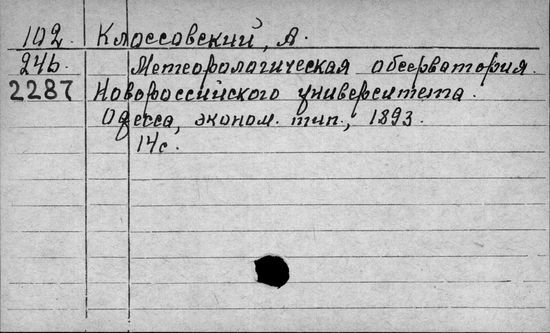 102. Клоссовский, А.
24б. Метеорологическая обсерватория.
2287 Новороссийского университета.
Одесса, эконом. тип., 1893.
14с.